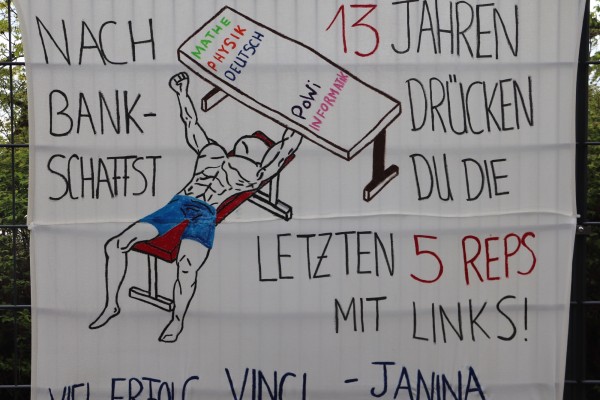 NACH 13 JAHREN
BANK- DRÜCKEN
SCHAFFST DU DIE
LETZTEN 5 REPS
MIT LINKS!
VIEL ERFOLG VINCI - JANINA
MATHE
PHYSIK
DEUTSCH
POWi
INFORMATIK